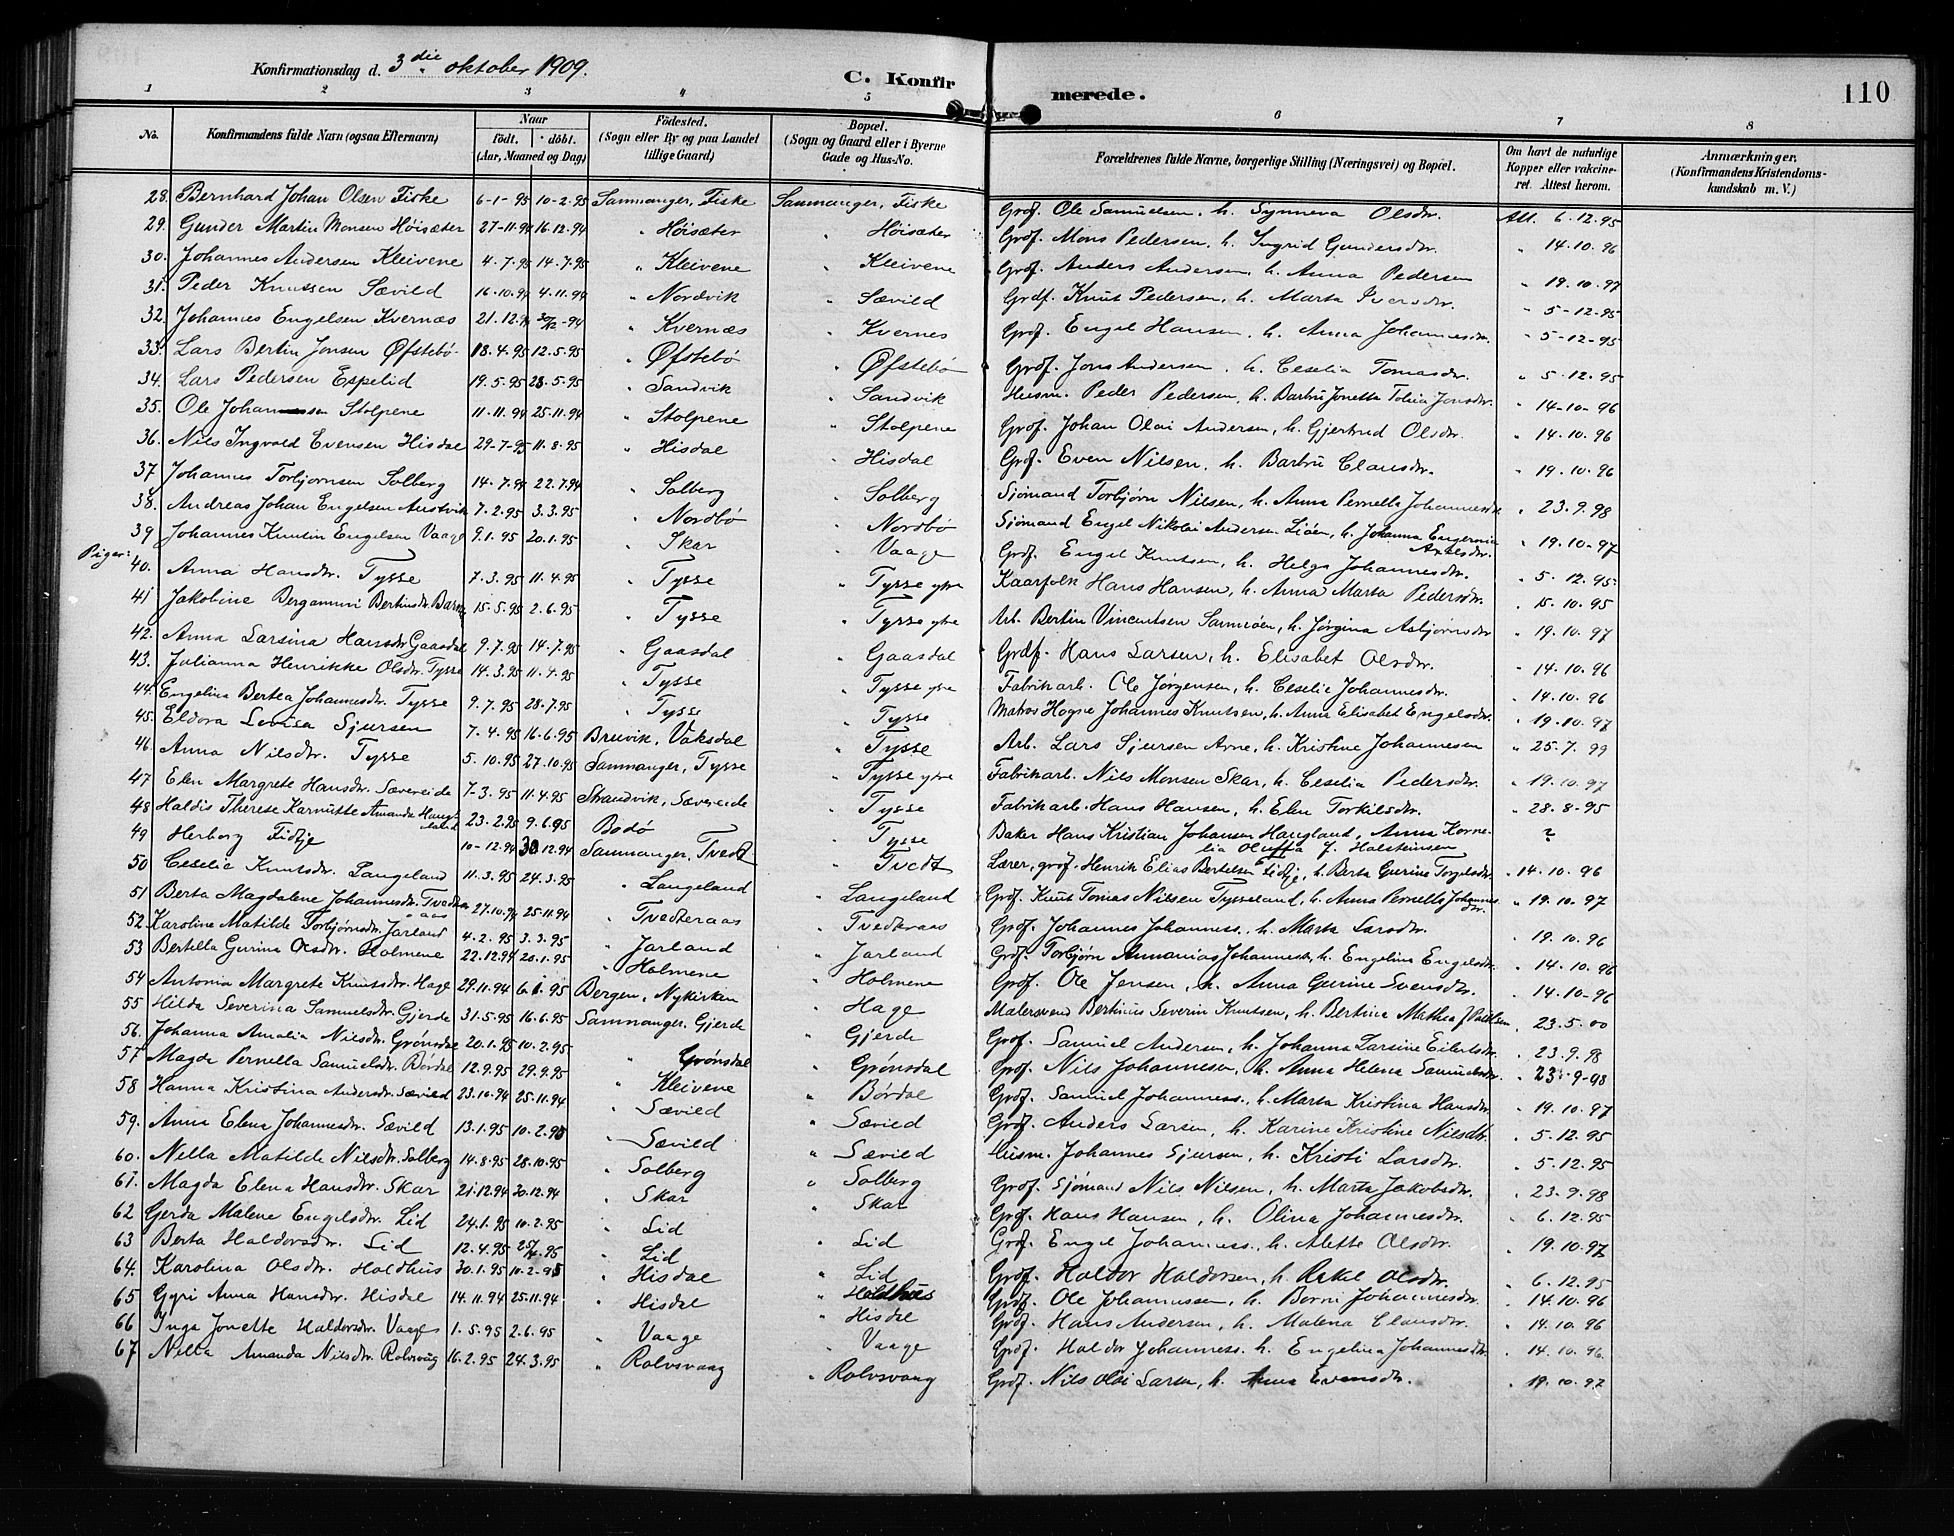 Konfirmationsdag d. 3die oktober 1909.
C. Konfirmerede.
110
1 2 3 4 5 6 7 8
No. Konfirmandens fulde Navn (ogsaa Efternavn) Naar födt. döbt. (Aar, Maaned og Dag) Födested. (Sogn eller By og paa Landet tillige Gaard) Bopæl. (Sogn og Gaard eller i Byerne Gade og Hus-No. Forældrenes fulde Navne, borgerlige Stilling (Næringsvei) og Bopæl. Om havt de naturlige Kopper eller vakcineret. Attest herom. Anmærkninger. (Konfirmandens Kristendomskundskab m. V.)
28. Bernhard Johan Olsen Fiske 6-1-95 10-2-95 Samnanger, Fiske Samnanger, Fiske Grdf. Ole Samuelsen, h. Synneva Olsdtr. Att. 6.12.95
29. Gunder Martin Monsen Höisæter 27-11-94 16.12.94 " Höisæter " Höisæter Grdf. Mons Pedersen, h. Ingrid Gundersdtr. " 14.10.96
30. Johannes Andersen Kleivene 4.7.95 14.7.95 " Kleivene " Kleivene Grdf. Anders Andersen, h. Anna Pedersen " 19.10.97
31. Peder Knutsen Sævild 16.10.94 4.11.94 " Nordvik " Sævild Grdf. Knut Pedersen, h. Marta Iversdtr. " 5-12-95
32. Johannes Engelsen Kvernæs 21.12.94 30/12-94 " Kvernæs " Kvernes Grdf. Engel Hansen, h. Anna Johannesdtr. " 5-12-95
33. Lars Bertin Jonsen Øfstebö 18.4.95 12.5.95 " Øfstebö " Øfstebö Grdf. Jons Andersen, h. Ceselia Tomasdtr. " 5.12.95
34. Lars Pedersen Espelid 19.5.95 23.5.95 " Sandvik " Sandvik Husm. Peder Pedersen, h. Barbru Jonetta Tolina Jonsdtr. " 14-10-96
35. Ole Johannesen Stolpene 11.11.94 25.11.94 " Stolpene " Stolpene Grdf. Johan Olai Andersen, h. Gjertrud Olsdtr. " 14.10.96
36. Nils Ingvald Evensen Hisdal 29-7-95 11.8.95 " Hisdal " Hisdal Grdf. Even Nilsen, h. Barbru Clausdtr. " 19.10.96
37. Johannes Torbjörnsen Solberg 14.7.94 22.7.94 " Solberg " Solberg Sjömand Torbjörn Nilsen, h. Anna Pernella Johannesdtr. " 23.9.98
38. Andreas Johan Engelsen Austvik 7.2.95 3.3.95 " Nordbö " Nordbö Sjömand Engel Nikolai Andersen Liöen, h. Johanna Engernia Axelsdtr. " 19.10-97
39 Johannes Knutin Engelsen Vaage 9.1.95 20.1.95 " Skar " Vaage Grdf. Engel Knutsen, h. Helga Johannesdtr. " 5.12.95
Piger:
40. Anna Hansdtr. Tysse 7.3.95 11.4.95 " Tysse " Tysse ytre Kaarfolk Hans Hansen, h. Anna Marta Pedersdtr. " 15.10.95
41 Jakobine Bergamini Bertinsdtr. 15.5.95 2.6.95 " Tysse " Tysse ytre Arb. Bertin Vincentsen Samnöen, h. Jörgina Asbjörnsdtr " 19.10.97
42. Anna Larsina Hansdtr. Gaasdal 9.7.95 14.7.95 " Gaasdal " Gaasdal Grdf. Hans Larsen, h. Elisabet Olsdtr. " 14.10.96
43. Julianna Henrikke Olsdtr. Tysse 14.3.95 11.4.95 " Tysse " Tysse ytre Fabrikarb. Ole Jörgensen, h. Ceselie Johannesdtr. " 14.10.96
44. Engelina Bertea Johannesdtr. Tysse 9.7.95 28.7.95 " Tysse " Tysse Matros Hogne Johannes Knutsen, h. Anna Elisabet Engelsdtr. " 19.10.97
45. Eldora Lovisa Sjursen 7.4.95 16.6.95 Breivik, Vaksdal " Tysse Arb. Lars Sjursen Arne, h. Kristine Johannesen " 25.7.99
46. Anna Nilsdtr. Tysse 5.10.95 27.10.95 Samnanger, Tysse " Tysse ytre Fabrikarb. Nils Monsen Skar, h. Ceselia Pedersdtr. " 19.10.97
47 Elen Margrete Hansdtr. Sævereide 7-3.95 11.4.95 Strandvik, Sævereide " Tysse Fabrikarb. Hans Hansen, h. Elen Torkilsdtr. " 28.8-95
48 Haldis Therese Karnutte Amanda Haugland 23.2.95 9.6.95 Bodö " Tysse Baker Hans Kristian Johansen Haugland, Anna Kornelia Oluffa f. Halsteinsen ?
49 Herborg Fidje 10-12.94 30.12.94 Samnanger, Tvedt " Tvedt Lærer, grdf. Henrik Elias Bertelsen Fidtje, h. Berta Gurine Torgelsdtr. " 14.10.96
50 Ceselie Knutsdtr. Langeland 11.3.95 24.3.95 " Langeland " Langeland Grdf. Knut Tomas Nilsen Tysseland, h. Anna Pernella Johannesdtr. " 19.10.97
51 Berta Magdalene Johannesdtr. Tvedteraas 27.10.94 25.11.94 " Tvedteraas " Tvedteraas Grdf. Johannes Johanness. h. Marta Larsdtr. " 19.10.96
52 Karoline Matilde Torbjörnsdtr. Jarland 4.2.95 3.3.95 " Jarland " Jarland Grdf. Torbjörn Annanias Johanness. h. Engelina Engelsdtr. " 14.10.96
53 Bertella Gurina Olsdtr. Holmene 22.12.94 20.1.95 " Holmene " Holmene Grdf. Ole Jensen, h. Anna Gurine Svensdtr. " 14.10-96
54 Antonia Margrete Knutsdtr. Hage 29.11.94 6.1.95 Bergen, Nykirken " Hage Malersvend Bertinus Severin Knutsen, h. Bertina Mathea f. Paulsen " 23.5.00
55 Hilda Severina Samuelsdtr. Gjerde 31.5.95 16.6.95 Samnanger, Gjerde " Gjerde Grdf. Samuel Andersen, h. Johanna Larsine Eilertsdtr. " 23.9.98
56. Johanna Amalia Nilsdtr. Grönsdal 20.1.95 10.2.95 " Grönsdal " Grönsdal Grdf. Nils Johannesen, h. Anna Helena Samuelsdtr. " 23.9-98
57 Magda Pernella Samuelsdtr. Bördal 12.9.95 29.9.95 " Kleivene " Bördal Grdf. Samuel Johanness. h. Marta Kristina Hansdtr. " 19.10.97
58 Hanna Kristina Andersdtr. Sævild 23.10.94 25.11.94 " Sævild " Sævild Grdf. Anders Larsen, h. Karine Kristine Nilsdtr. " 5.12.95
59. Anna Elena Johannesdtr. Sævild 13.1.95 10.2.95 " Sævild " Sævild Husm. Johannes Sjursen, h. Kristi Larsdtr. " 5.12.95
60. Nella Matilde Nilsdtr. Solberg 14.8.95 28.10.95 " Solberg " Solberg Grdf. Sjömand Nils Nilsen, h. Marta Jakobsdtr. " 23.9.98
61. Magda Elena Hansdtr. Skar 21.12.94 30.12.94 " Skar " Skar Grdf. Hans Hansen, h. Olina Johannesdtr. " 6.12.95
62 Gerda Malene Engelsdtr. Lid 24.1.95 10.2.95 " Lid " Lid Grdf. Engel Johanness. h. Alette Olsdtr. " 19.10.97
63 Berta Haldorsdtr. Lid 12.4.95 25/4.95 " Lid " Lid Grdf. Haldor Haldorsen, h. Rakel Olsdtr. " 6.12.95
64. Karolina Olsdtr. Holdhus 30.1.95 10.2.95 " Hisdal " Holdhus Grdf. Ole Johannessen, h. Borni Johannesdtr. " 14.10.96
65 Gyri Anna Hansdtr. Hisdal 14.11.94 25.11.94 " Hisdal " Hisdal Grdf. Hans Andersen, h. Malena Clausdtr. " 14.10.96
66 Inga Jonette Haldorsdtr. Vaage 1.5.95 2.6.95 " Vaage " Vaage Grdf. Haldor Johanness. h. Engelina Johannesdtr. " 14.10.96.
67 Nella Amanda Nilsdtr. Rolvsvug 16.2.95 24.3.95 " Rolvsvaag " Rolvsvaag Grdf. Nils Olai Larsen, h. Anna Evensdtr. " 19.10.97